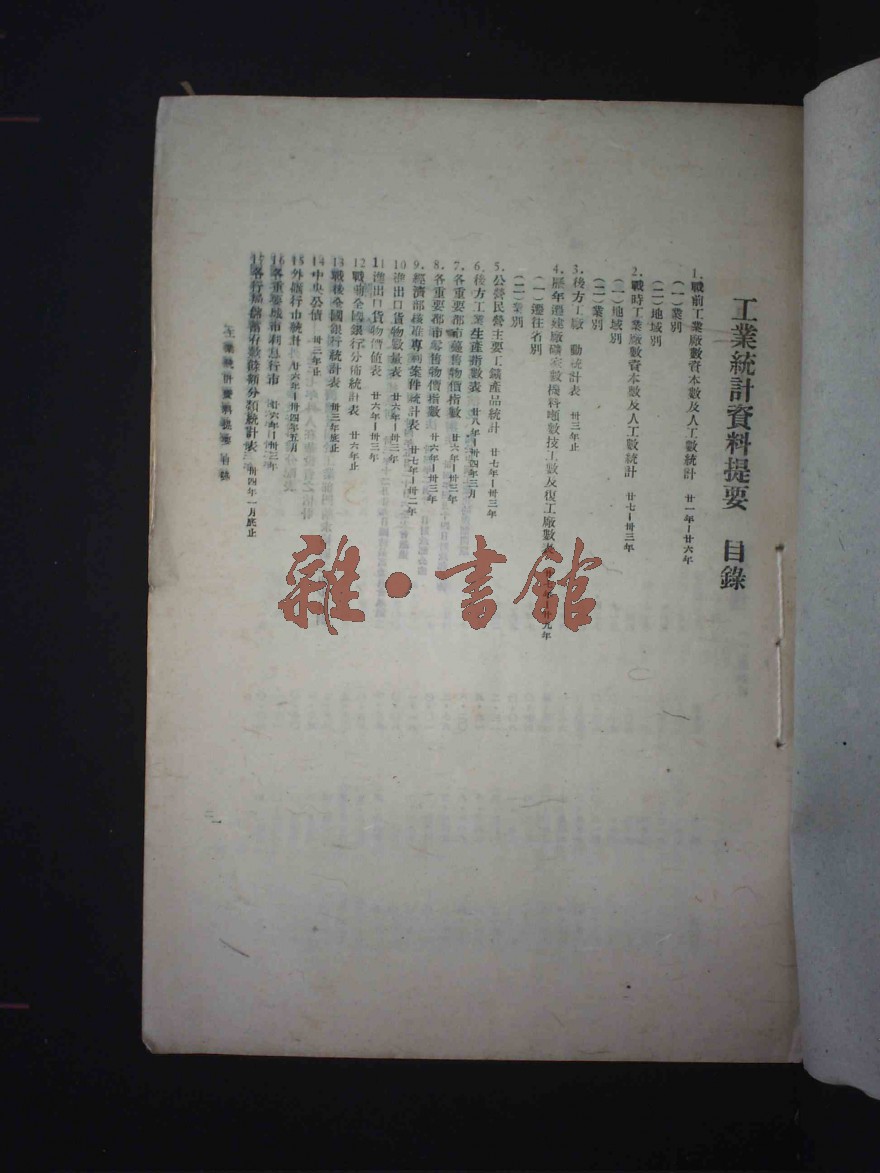 工業統計資料提要 目錄
1. 戰前工業廠數資本數及人工數統計 廿一年—廿六年
(一)業別
(二)地域別
2. 戰時工業廠數資本數及人工數統計 廿七—卅三年
(一)地域別
(二)業別
3. 後方工廠 動統計表 卅三年止
4. 歷年遷建廠礦家數 料噸數技工數及復工廠數表 九年
(一)遷往省別
(二)業別
5. 公營民營主要工鑛產品統計 廿七年—卅三年
6. 後方工業生產指數表 廿八年—卅四年三月
7. 各重要都市躉售物價指數 廿六年—卅三年
8. 各重要都市零售物價指數 廿六年—卅三年
9. 經濟部核准專利案件統計表 廿七年—卅二年
10. 進出口貨物數量表 廿六年—卅三年
11. 進出口貨物價值表 廿六年—卅三年
12. 戰前全國銀行分佈統計表 廿六年止
13. 戰後全國銀行統計表 卅三年底止
14. 中央公債 卅三年止
15. 外匯行市統計 廿六年—卅四年五月
16. 各重要城市利息行市 廿六年—卅三年
17. 各行局儲蓄存數餘額分類統計表 卅四年一月底止
工業統計資料提要 目錄
雜·書館